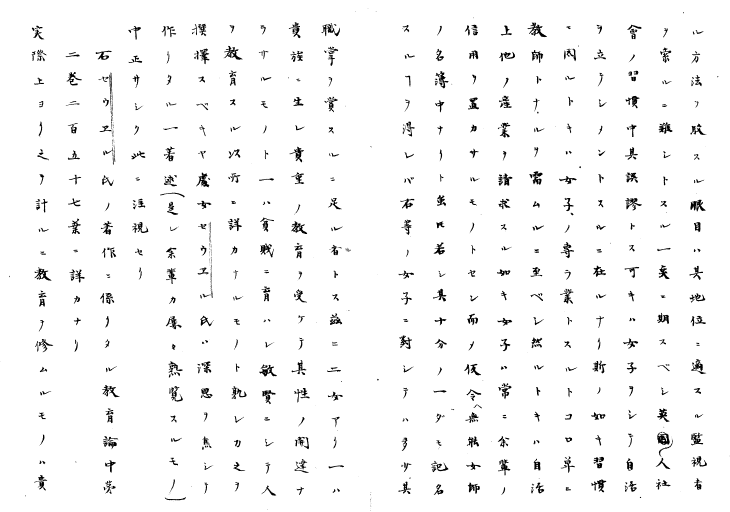 ル方法ヲ設スル眼目ハ其地位ニ適スル監視者
ヲ索ルニ難シトスル一矣ニ期スベシ英國人社
會ノ習慣中其誤謬トス可キハ女子ヲシテ自活
ヲ立テシメントスルニ在ルナリ斯ノ如キ習慣
ニ因ルトキハ女子ノ専ラ業トスルトコロ単ニ
教師トナルヲ需ムルニ至ベシ然ルトキハ自活
上他ノ産業ヲ請求スル如キ女子ハ常ニ余輩ノ
信用ヲ置カサルモノトセン而メ仮令ヘ無能女師
ノ名簿中ナリト虽𪜈若シ其十分ノ一ダモ記名
スルヿヲ得レバ右等ノ女子ニ對シテハ多少其
職掌ヲ賞スルニ足ル者トス茲ニ二女アリ一ハ
貴族ニ生レ貴重ノ教育ヲ受ケテ其性ノ闊達ナ
ラサルモノト一ハ貧賎ニ育ハレ敏賢ニシテ人
ヲ教育スル以所ニ詳カナルモノト孰レカ之ヲ
撰擇スベキヤ處女セウエル氏ハ深思ヲ焦シテ
作リタル一著述(是レ余輩カ屡々熟覧スルモノ)
中正サシク此ニ注視セリ
右セウエル氏ノ著作ニ係リタル教育論中第
二巻二百五十七葉ニ詳カナリ
実際上ヨリ之ヲ計ルニ教育ヲ修ムルモノハ貴